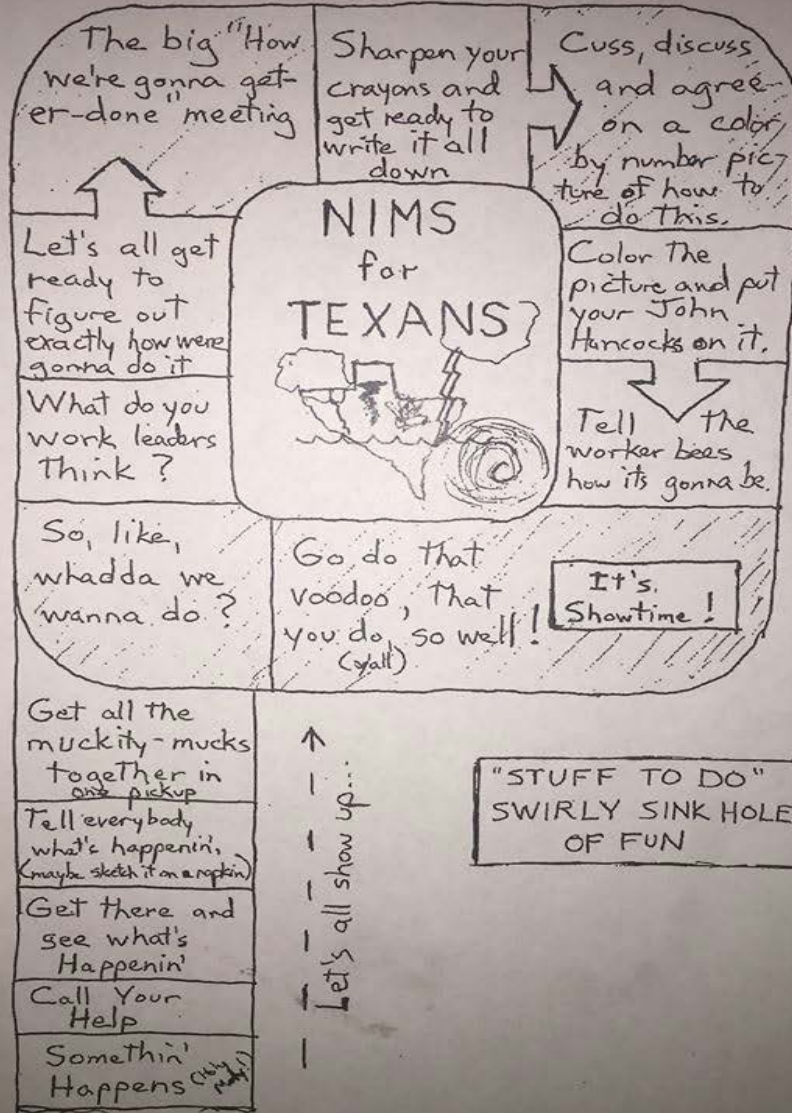 The big "How
we're gonna get-
er-done" meeting
Sharpen your
crayons and
get ready to
write it all
down
Cuss, discuss
and agree
on a color
by number pic-
ture of how to
do This.
Let's all get
ready to
figure out
exactly how were
gonna do it
NIMS
for
TEXANS
Color The
picture and put
your John
Hancocks on it.
What do you
work leaders
Think ?
Tell the
worker bees
how its gonna be.
So, like,
whadda we
wanna do ?
Go do that
voodoo, That
you do, so well !
(y'all)
It's
Showtime !
Get all The
muckity-mucks
together in
one pickup
Tell everybody
what's happenin',
(maybe sketch it on a napkin)
Get there and
see what's
Happenin'
Call Your
Help
Somethin'
Happens
Let's all show up...
"STUFF TO DO"
SWIRLY SINK HOLE
OF FUN